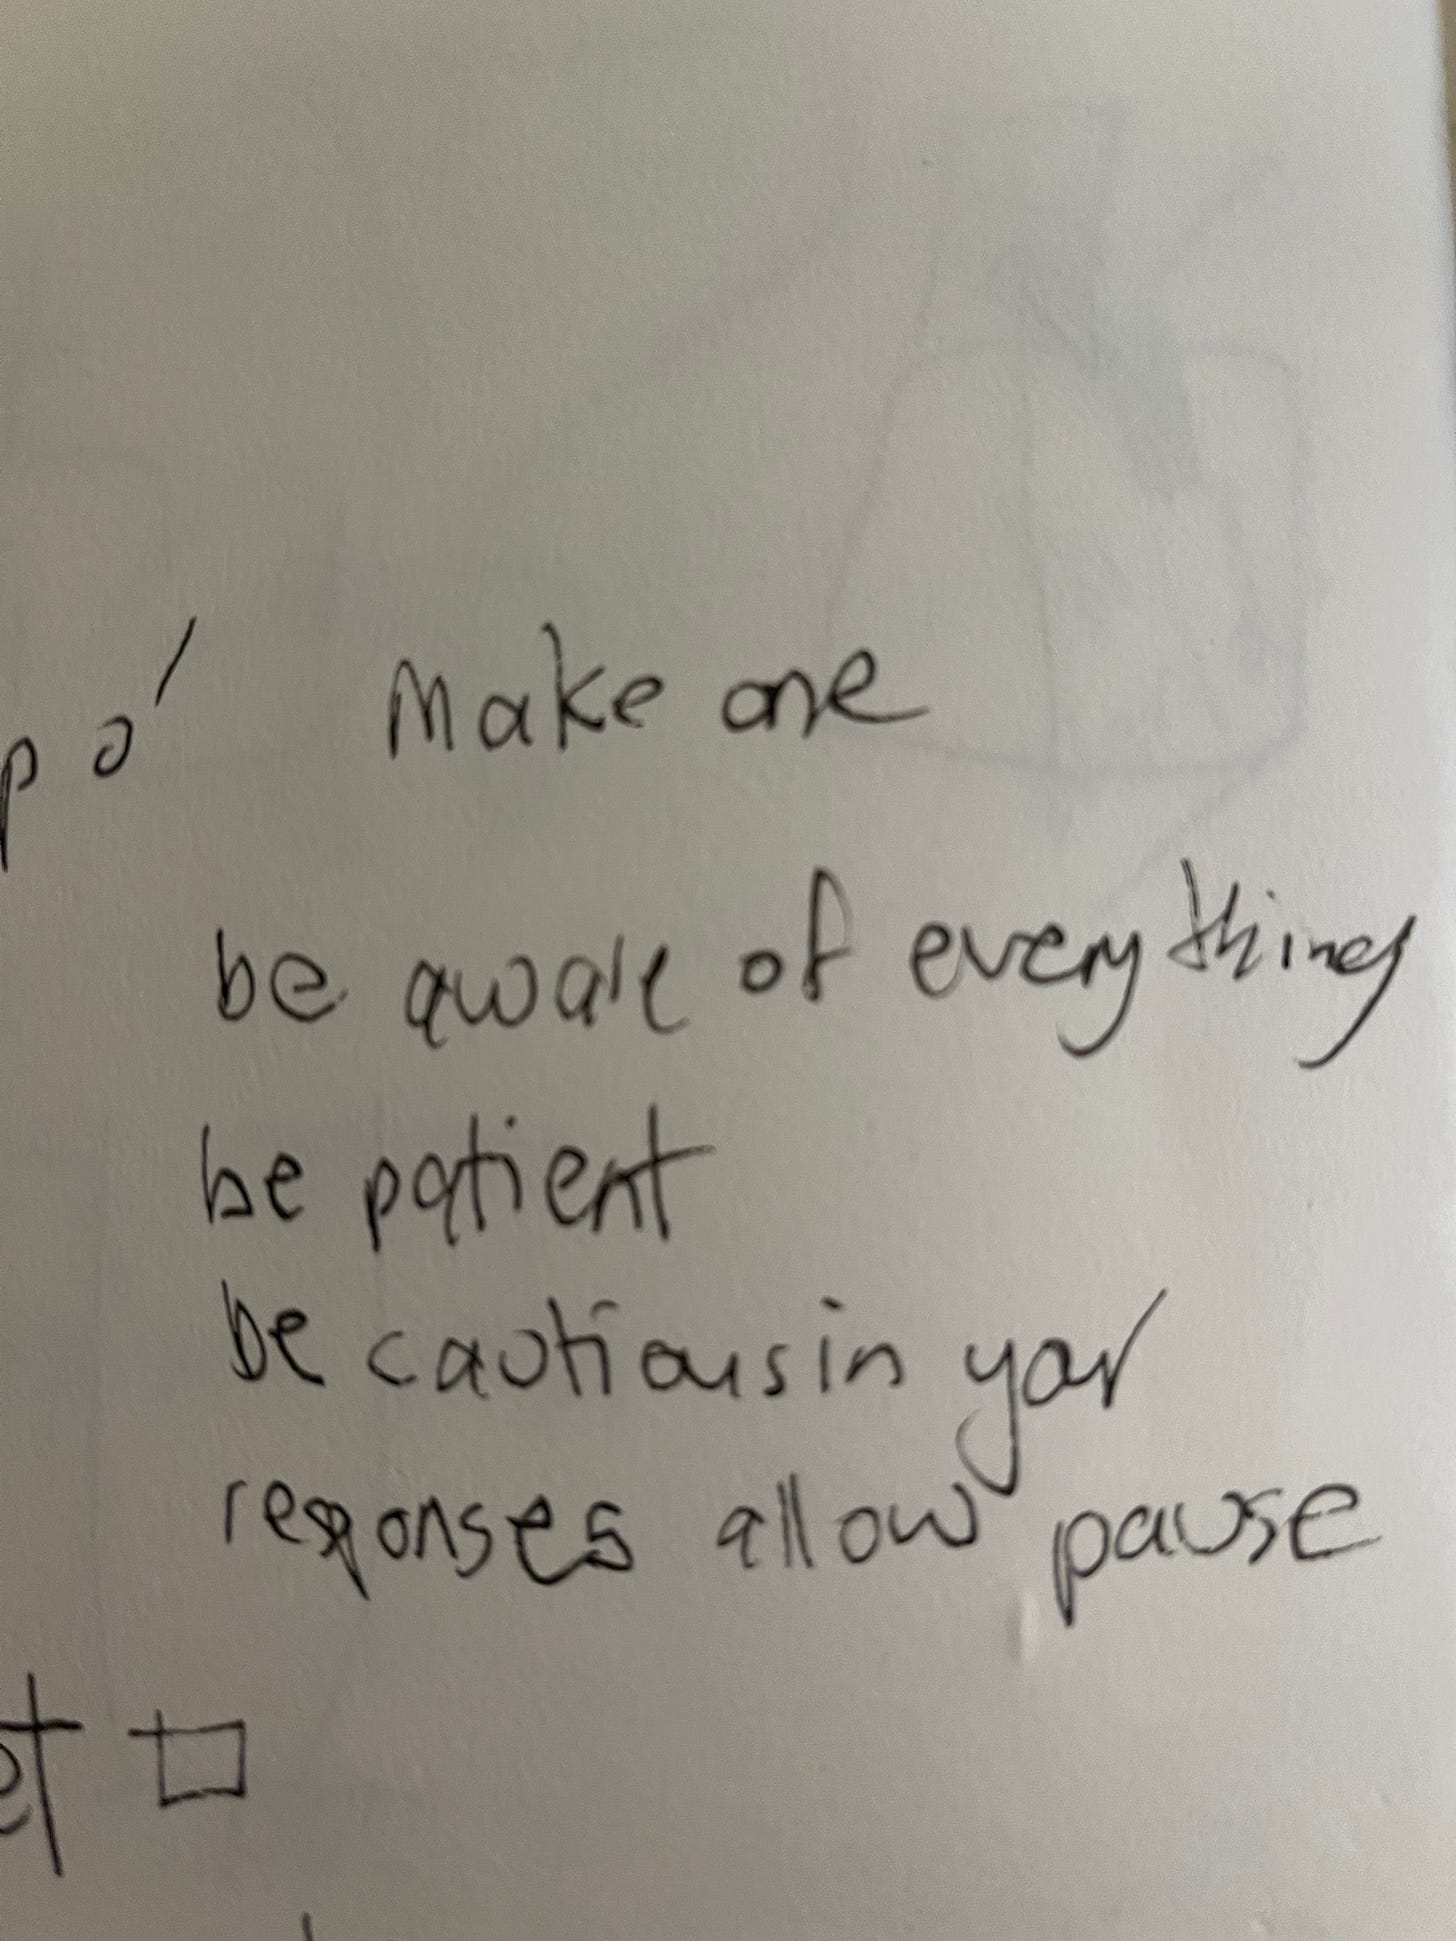 po' Make one
be aware of everything
be patient
be cautious in your
responses allow pause
et